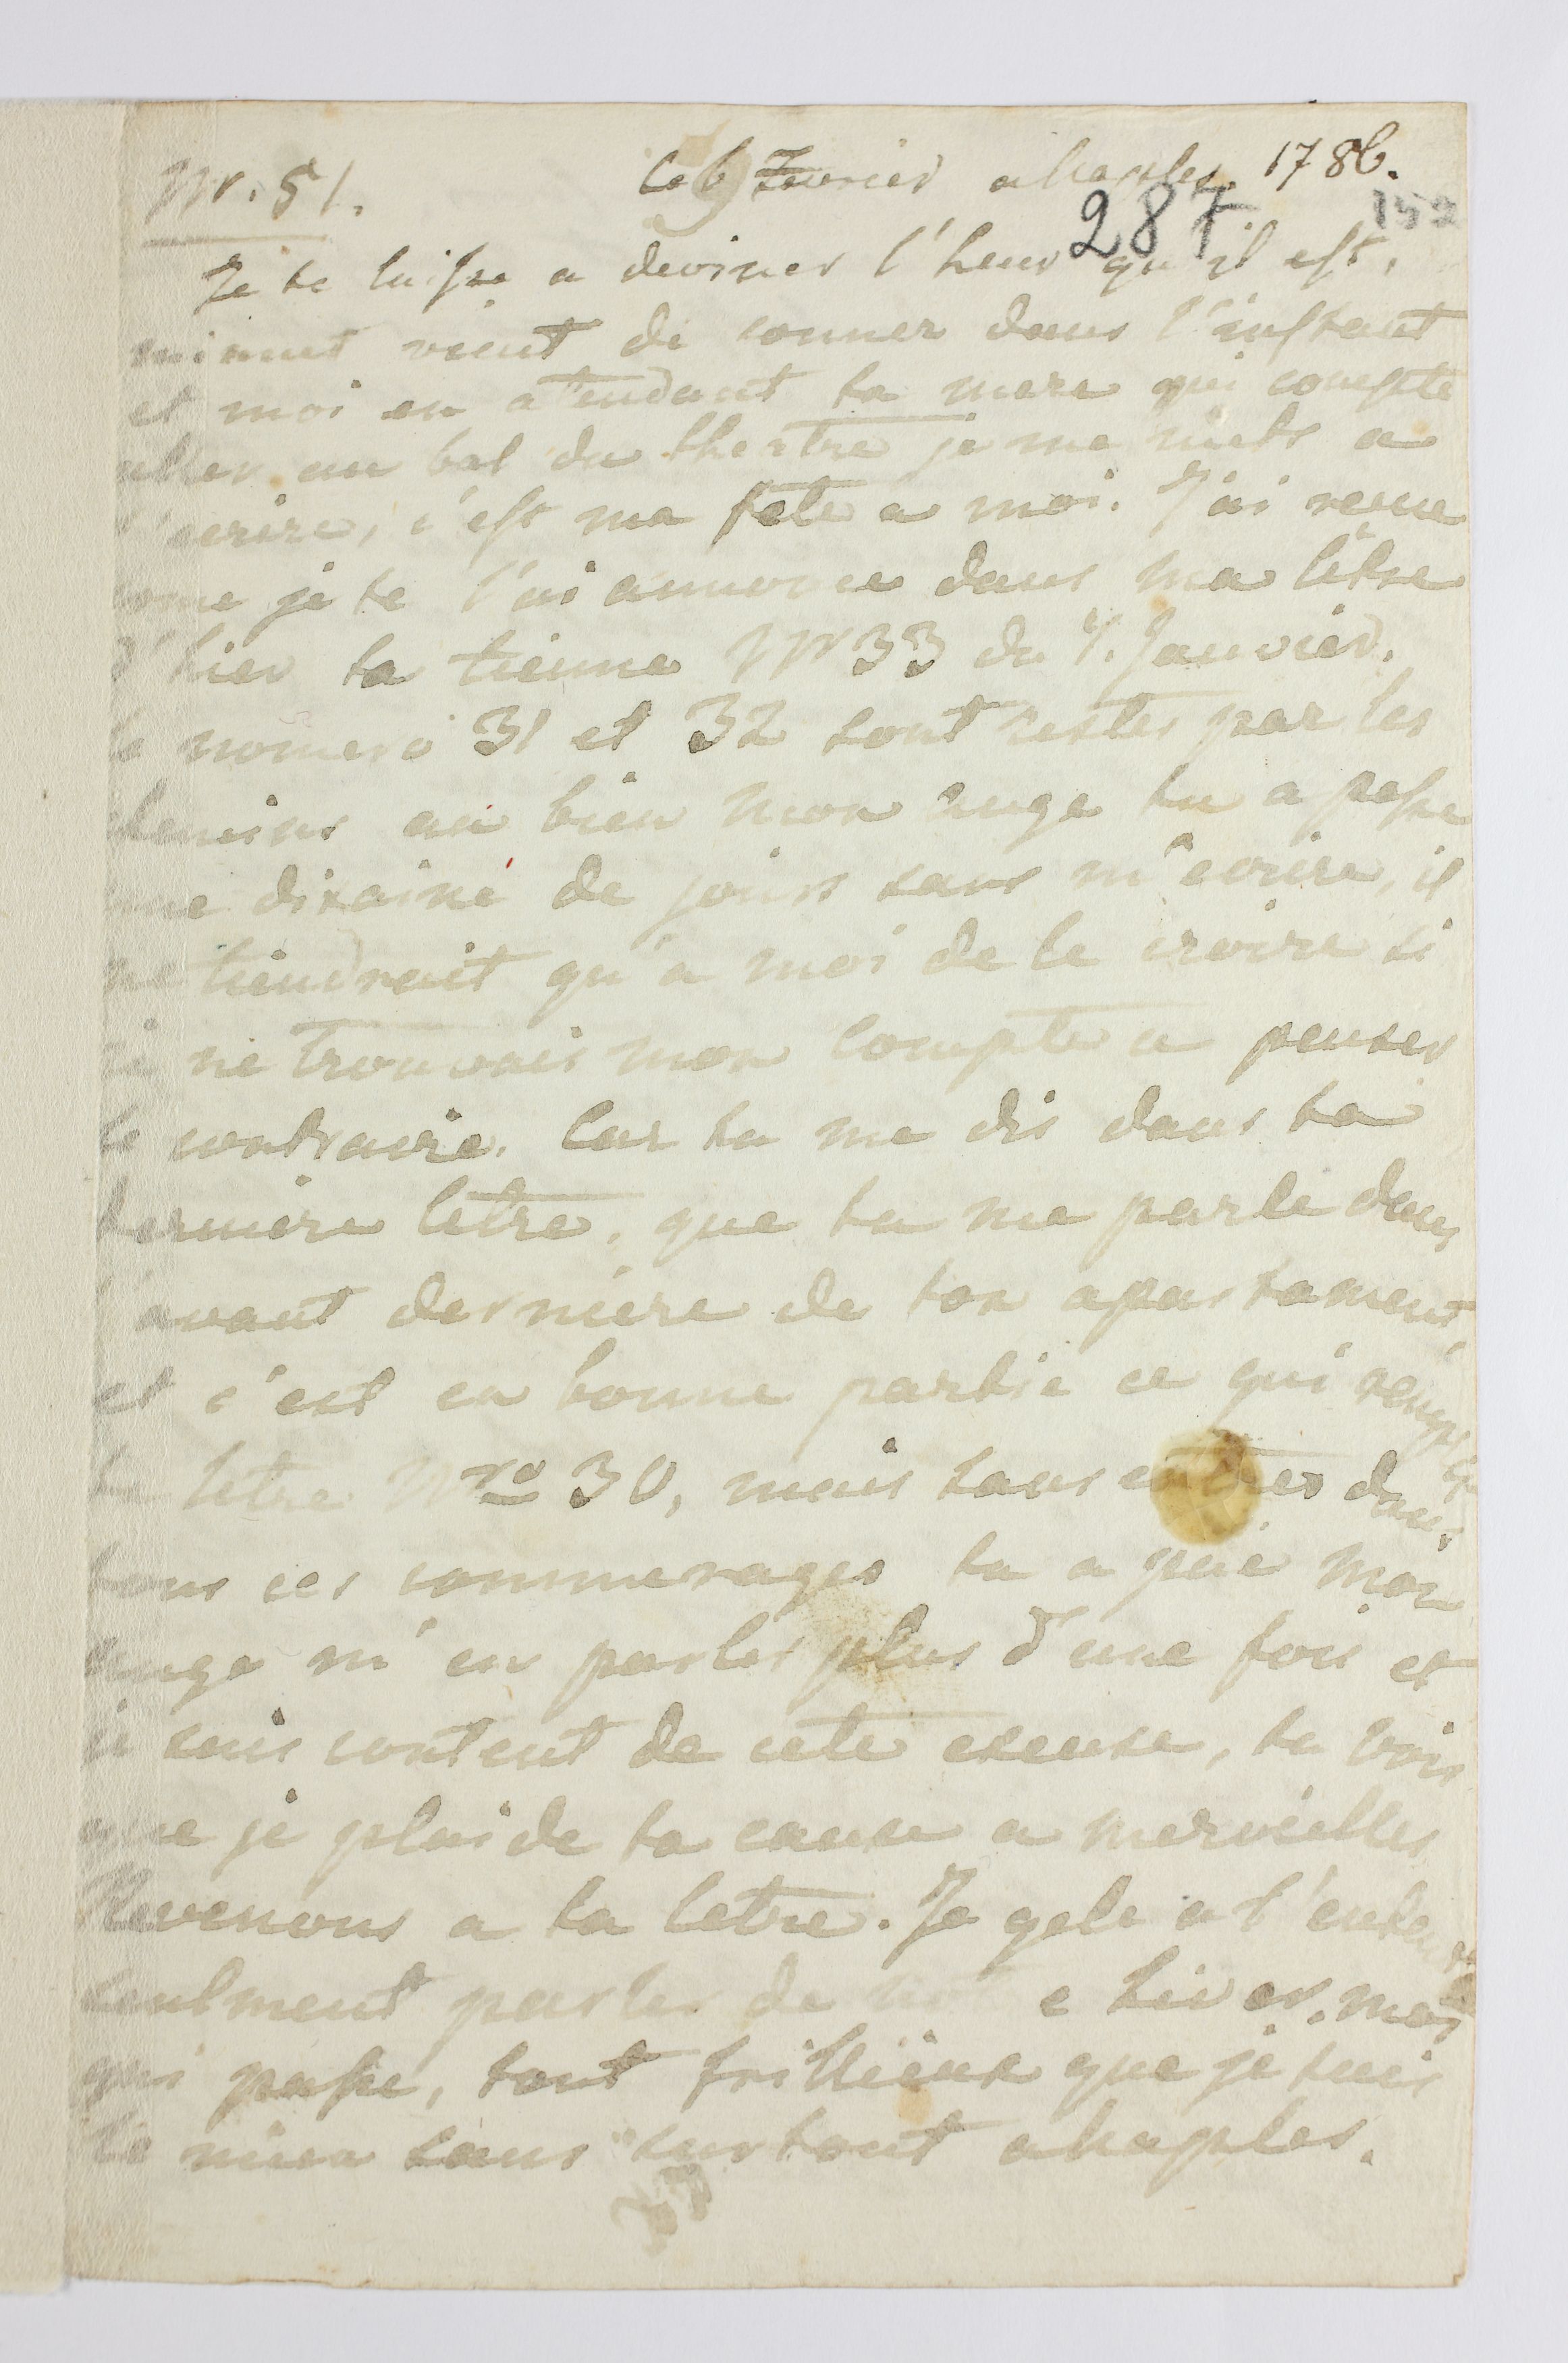 Nr. 51. Le 6 Fevrier a Naples. 1786.
287 152
Je te laisse a deviner l'heur qu'il est,
minuit vient de sonner dans l'instant
et moi en atendant ta mere qui compte
aller au bal du theatre je me mets a
t'ecrire, c'est ma fete a moi. J'ai recue
come je te l'ai annonce dans ma letre
d'hier ta tienne Nr 33 du 7. Janvier.
le nomero 31 et 32 sont restés par les
chemins au bien mon ange tu a passe
une dizaine de jours sans m'ecrire, il
ne tiendrait qu'a moi de le croire si
je ne trouvais mon compte a penser
le contraire. Car tu me dis dans ta
derniere letre, que tu me parle dans
l'avant derniere de ton apartament,
et c'est en bonne partie ce qui remplit
ta letre Nro 30, mais sans entrer dans
tous ces commerages tu a pue mon
ange m'en parler plus d'une fois et
je suis content de cete excuse, tu vois
que je plaide ta cause a merveilles
Revenons a ta letre. Je gele a l'entendre
seulment parler de not e hiver. moi
qui passe, tout frillieux que je suis
le mien sans surtout a Naples.